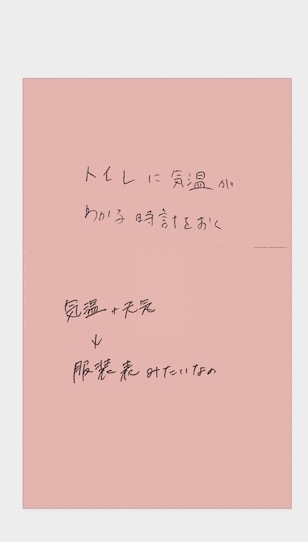 トイレに気温が
わかる時計をおく
気温+天気
↓
服装表みたいなの